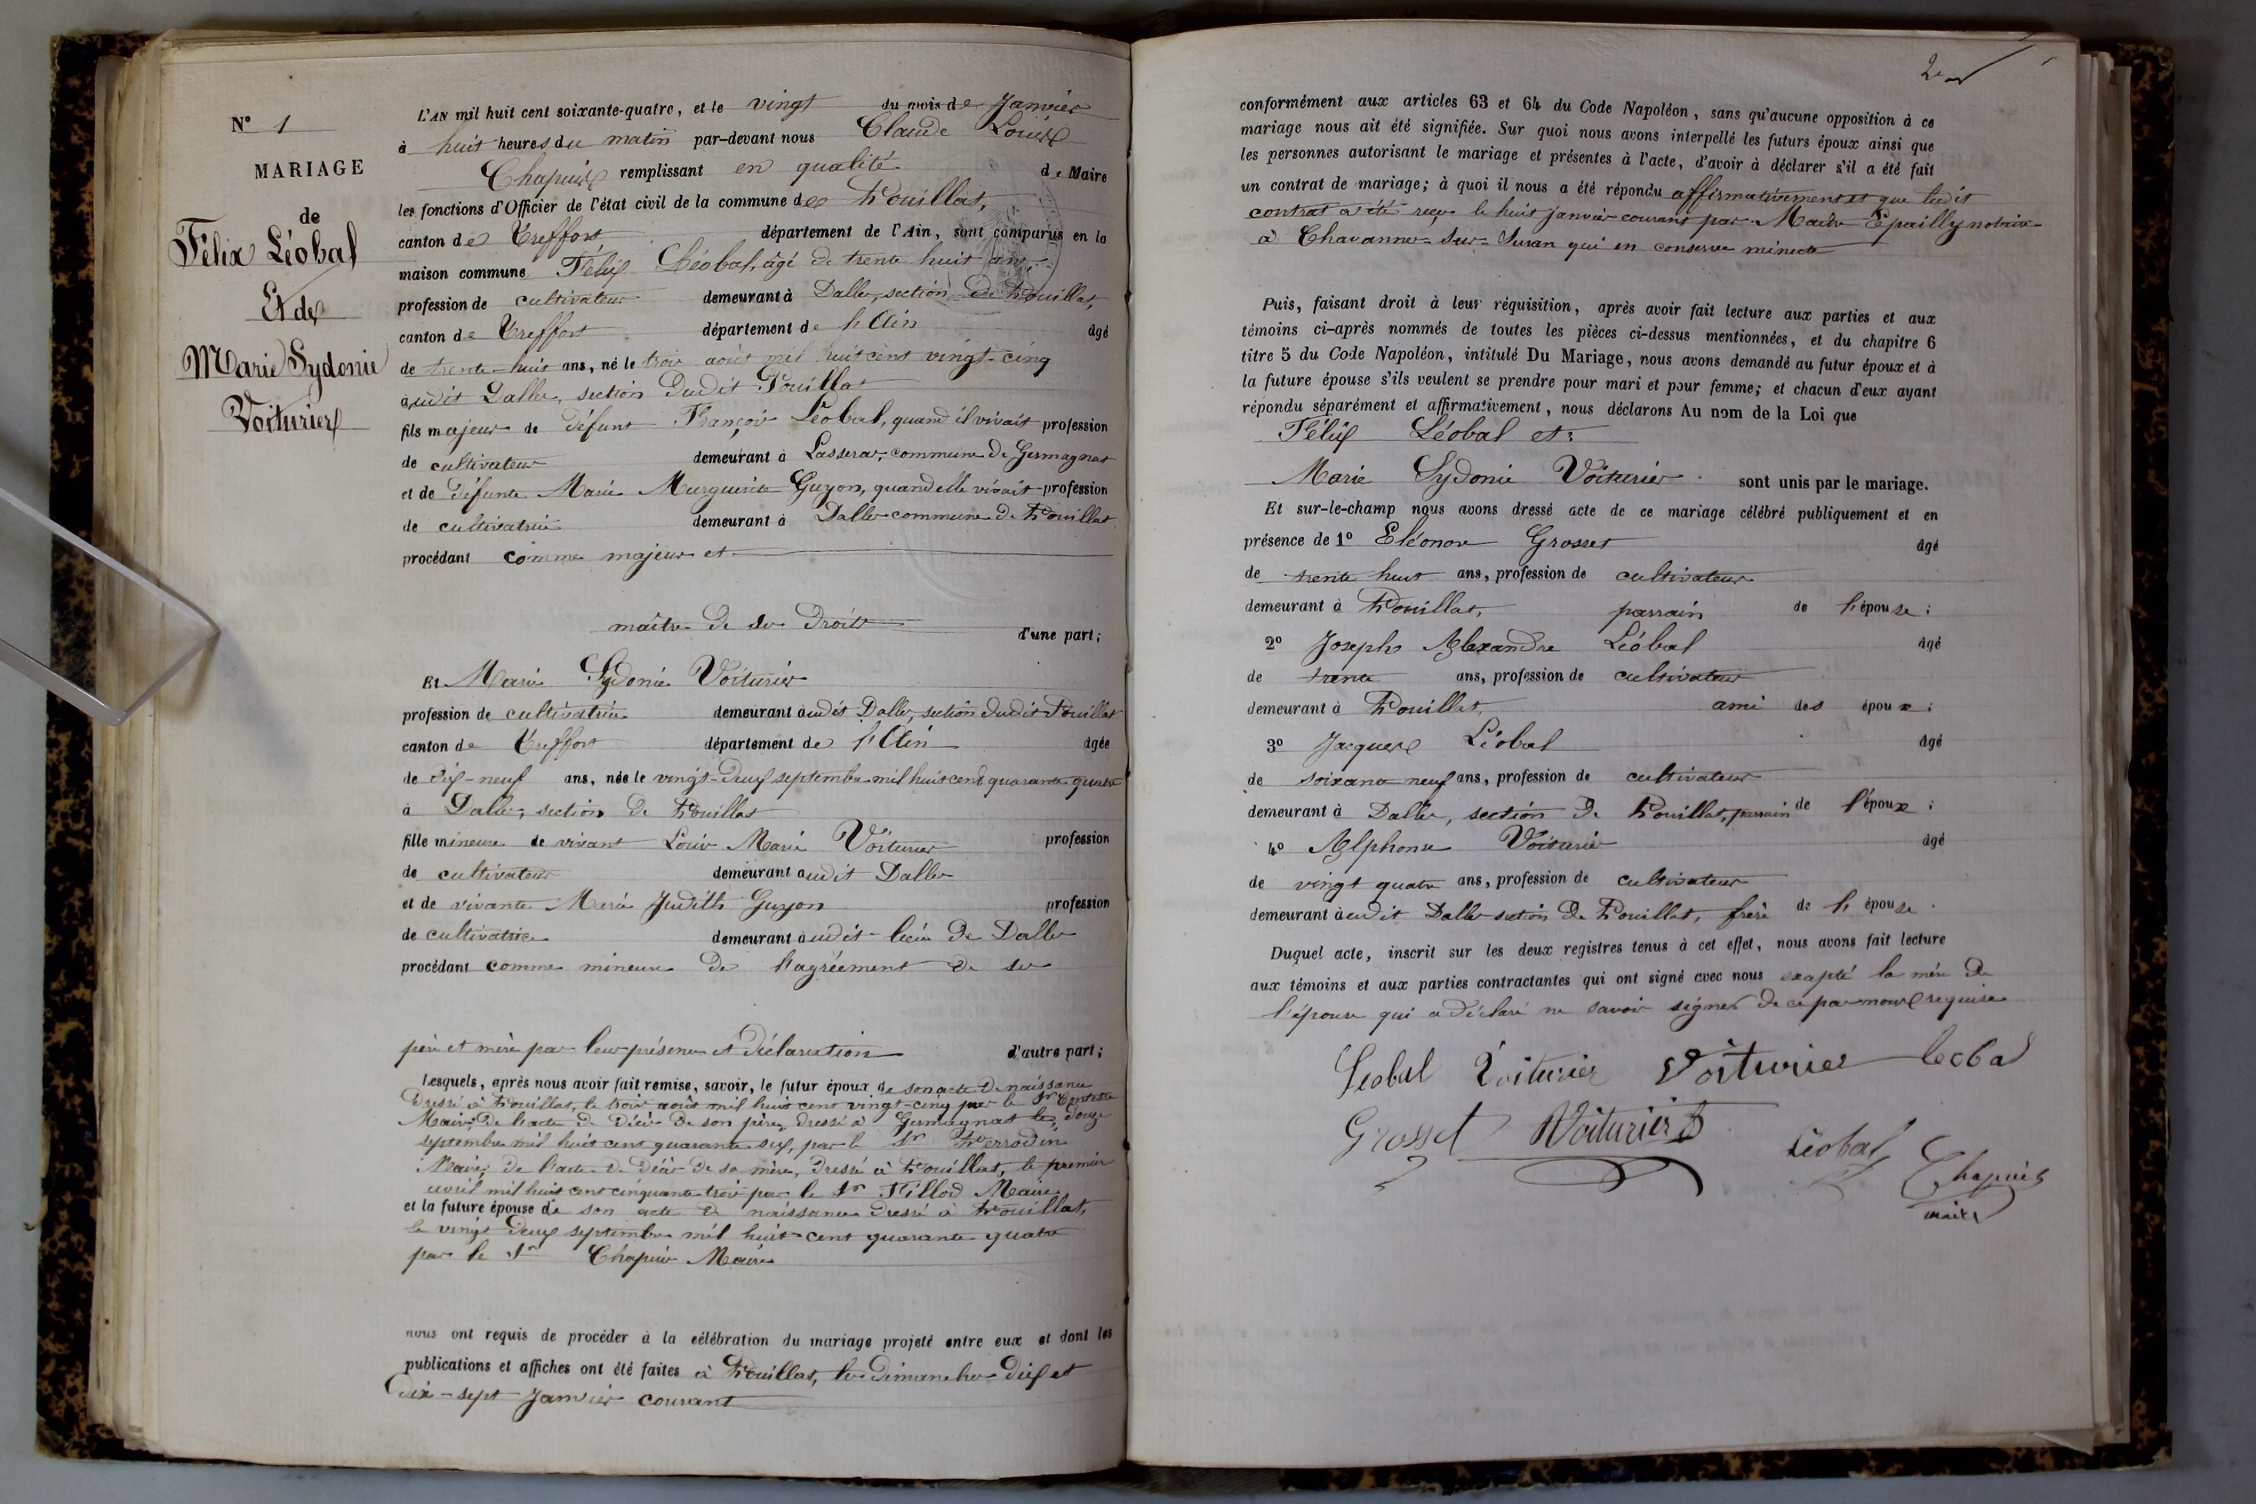 N° 1
MARIAGE
de
Félix Léobal
Et de
Marie Sydonie
Voiturier
L'AN mil huit cent soixante-quatre, et le vingt du mois de Janvier
à huit heures du matin par-devant nous Claude Louis
Chapuis remplissant en qualité de Maire
les fonctions d'Officier de l'état civil de la commune de Pouillat,
canton de Treffort département de l'Ain, sont comparus en la
maison commune Félix Léobal, âgé de trente huit ans,
profession de cultivateur demeurant à Dalles, section de Pouillat,
canton de Treffort département de l'Ain âgé
de trente-huit ans, né le trois août mil huit cent vingt-cinq
audit Dalles, section dudit Pouillat
fils majeur de défunt François Léobal, quand il vivait profession
de cultivateur demeurant à Lasseras, commune de Germagnat
et de défunte Marie Marguerite Guyon, quand elle vivait profession
de cultivatrice demeurant à Dalles commune de Pouillat
procédant comme majeur et
maître de ses droits d'une part;
Et Marie Sydonie Voiturier
profession de cultivatrice demeurant audit Dalles, section dudit Pouillat
canton de Treffort département de l'Ain âgée
de dix-neuf ans, née le vingt-deux septembre mil huit cent quarante quatre
à Dalles, section de Pouillat
fille mineure de vivant Louis Marie Voiturier profession
de cultivateur demeurant audit Dalles
et de vivante Marie Judith Guyon profession
de cultivatrice demeurant audit lieu de Dalles
procédant comme mineure de l'agréement de ses
père et mère par leur présence et déclaration d'autre part;
Lesquels, après nous avoir fait remise, savoir, le futur époux de son acte de naissance
dressé à Pouillat, le trois août mil huit cent vingt-cinq par le Sr
Maire; de l'acte de décès de son père, dressé à Germagnat le douze
septembre mil huit cent quarante six, par le Sr Perrodin
Maire; de l'acte de décès de sa mère, dressé à Pouillat, le premier
avril mil huit cent cinquante trois par le Sr Fillod Maire
et la future épouse de son acte de naissance dressé à Pouillat,
le vingt deux septembre mil huit cent quarante quatre
par le Sr Chapuis Maire
nous ont requis de procéder à la célébration du mariage projeté entre eux et dont les
publications et affiches ont été faites à Pouillat, les dimanches dix et
dix-sept Janvier courant
2e
conformément aux articles 63 et 64 du Code Napoléon, sans qu'aucune opposition à ce
mariage nous ait été signifiée. Sur quoi nous avons interpellé les futurs époux ainsi que
les personnes autorisant le mariage et présentes à l'acte, d'avoir à déclarer s'il a été fait
un contrat de mariage; à quoi il nous a été répondu affirmativement et que ledit
contrat a été reçu le huit janvier courant par Maître Epailly notaire
à Chavannes-sur-Suran qui en conserve minute
Puis, faisant droit à leur réquisition, après avoir fait lecture aux parties et aux
témoins ci-après nommés de toutes les pièces ci-dessus mentionnées, et du chapitre 6
titre 5 du Code Napoléon, intitulé Du Mariage, nous avons demandé au futur époux et à
la future épouse s'ils veulent se prendre pour mari et pour femme; et chacun d'eux ayant
répondu séparément et affirmativement, nous déclarons Au nom de la Loi que
Félix Léobal et
Marie Sydonie Voiturier sont unis par le mariage.
Et sur-le-champ nous avons dressé acte de ce mariage célébré publiquement et en
présence de 1° Eléonor Grosset âgé
de trente huit ans, profession de cultivateur
demeurant à Pouillat, parrain de l'épouse;
2° Joseph Alexandre Léobal âgé
de trente ans, profession de cultivateur
demeurant à Pouillat, ami des époux;
3° Jacques Léobal âgé
de soixante neuf ans, profession de cultivateur
demeurant à Dalles, section de Pouillat, parrain de l'époux;
4° Alphonse Voiturier âgé
de vingt quatre ans, profession de cultivateur
demeurant audit Dalles section de Pouillat, frère de l'épouse.
Duquel acte, inscrit sur les deux registres tenus à cet effet, nous avons fait lecture
aux témoins et aux parties contractantes qui ont signé avec nous excepté la mère de
l'épouse qui a déclaré ne savoir signer de ce par nous requise
Leobal Voiturier Voiturier Leobal
Grosset Voiturier Léobal Chapuis
maire